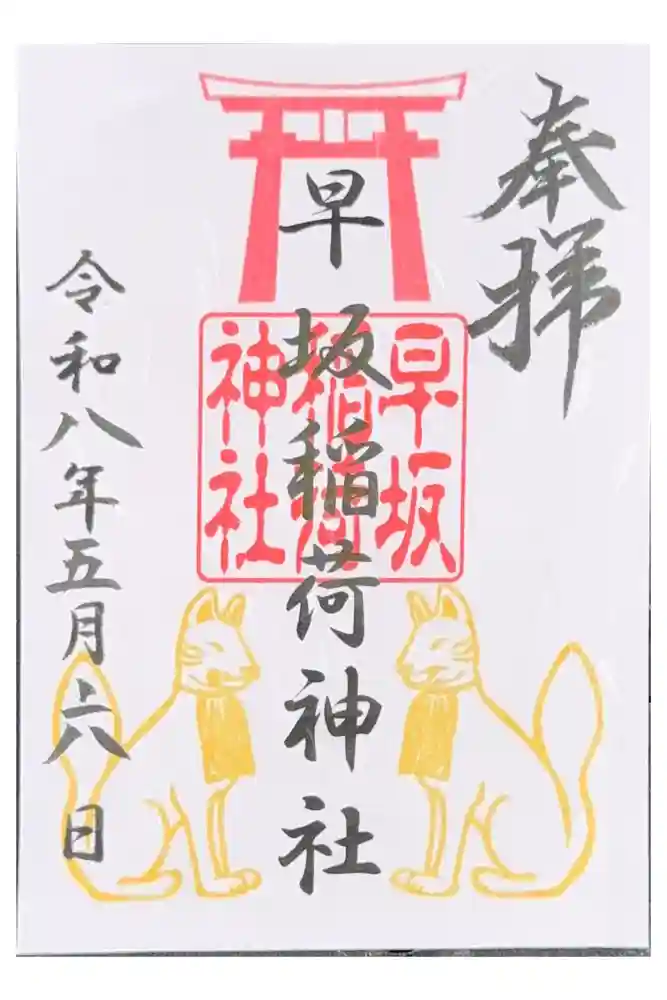 奉拝
早坂稲荷神社
早坂
稲荷
神社
令和八年五月六日